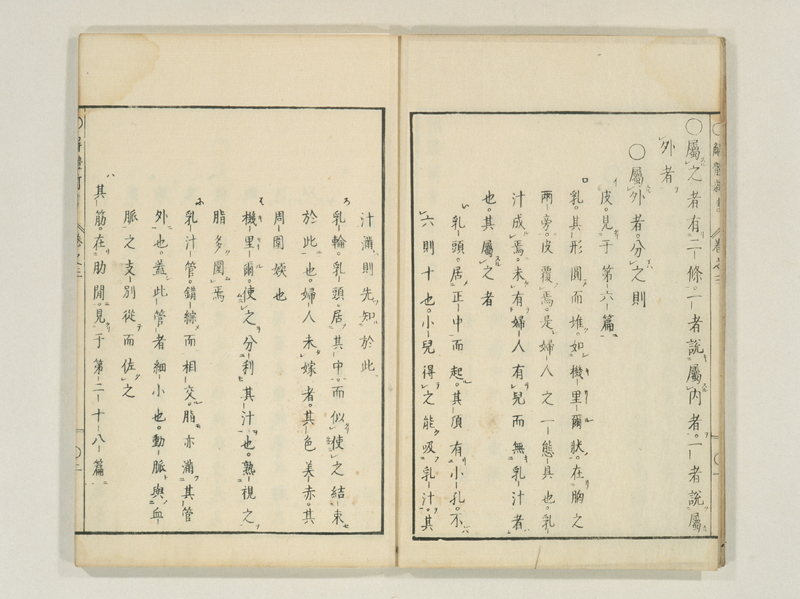 ○屬之者有二條一者說屬內者一者說屬
外者
○屬外者分之則
皮見于第六篇
乳其形圓而堆如機里爾狀在胸之
兩旁皮覆焉是婦人之一態具也乳
汁成焉未有婦人有兒而無乳汁者
也其屬之者
い 乳頭居正中而起其頂有小孔不
六則十也小兒得之能吸乳汁其
汁滿則先知於此
ろ 乳輪乳頭居其中而似使之結束
於此也婦人未嫁者其色美赤其
周圍媄也
機里爾使之分利其汁也熟視之
脂多圍焉
乳汁管錯綜而相交脂亦滿其管
外也蓋此管者細小也動脈與血
脈之支別從而佐之
ハ 其筋在肋間見于第二十八篇
卷之三